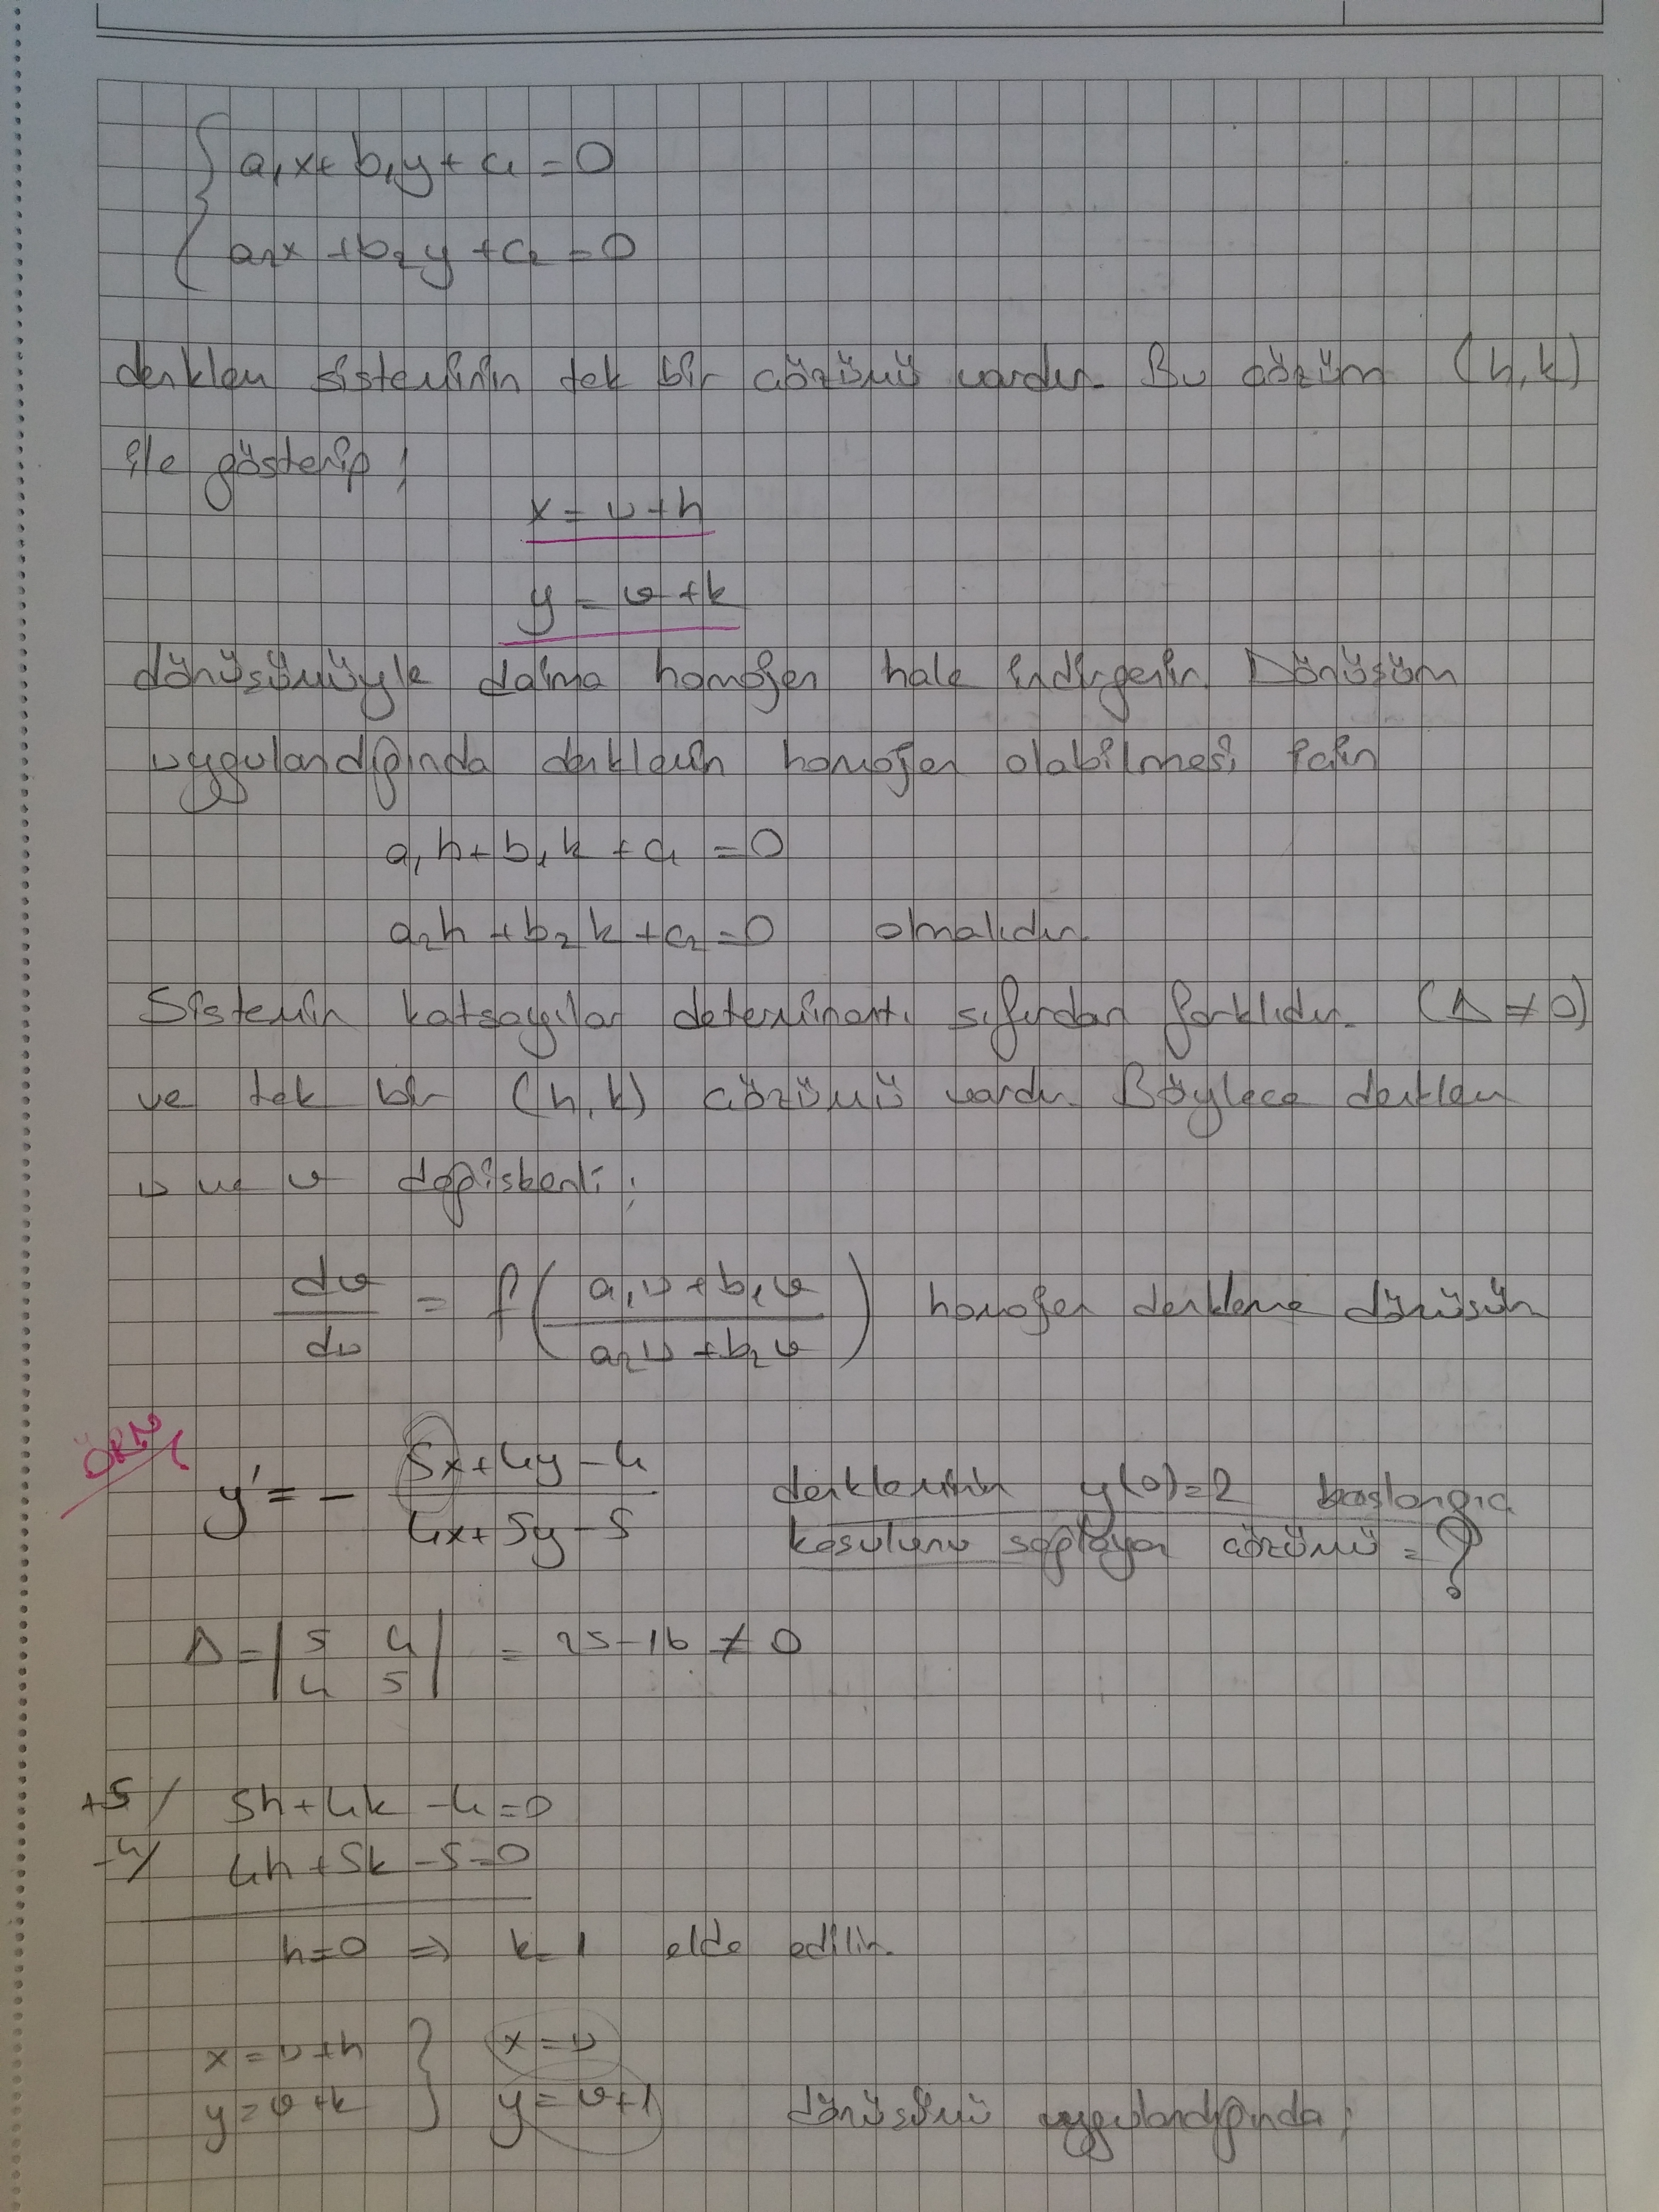 a₁x + b₁y + c₁ = 0
a₂x + b₂y + c₂ = 0
denklem sisteminin tek bir çözümü vardır. Bu çözüm (h,k)
ile gösterip;
x = u + h
y = v + k
dönüşümüyle daima homojen hale indirgenir. Dönüşüm
uygulandığında denklemin homojen olabilmesi için
a₁h + b₁k + c₁ = 0
a₂h + b₂k + c₂ = 0 olmalıdır.
Sistemin katsayılar determinantı sıfırdan farklıdır. (Δ ≠ 0)
ve tek bir (h,k) çözümü vardır. Böylece denklem
u ve v değişkenli;
dv/du = f( (a₁u + b₁v) / (a₂u + b₂v) ) homojen denkleme dönüşür
ÖRN/
y' = - (5x + 4y - 4) / (4x + 5y - 5) denkleminin y(0)=2 başlangıç
koşulunu sağlayan çözümü = ?
Δ = | 5 4 ; 4 5 | = 25 - 16 ≠ 0
+5/ 5h + 4k - 4 = 0
-4/ 4h + 5k - 5 = 0
h = 0 ⇒ k = 1 elde edilir.
x = u + h } x = u
y = v + k } y = v + 1 dönüşümü uygulandığında;